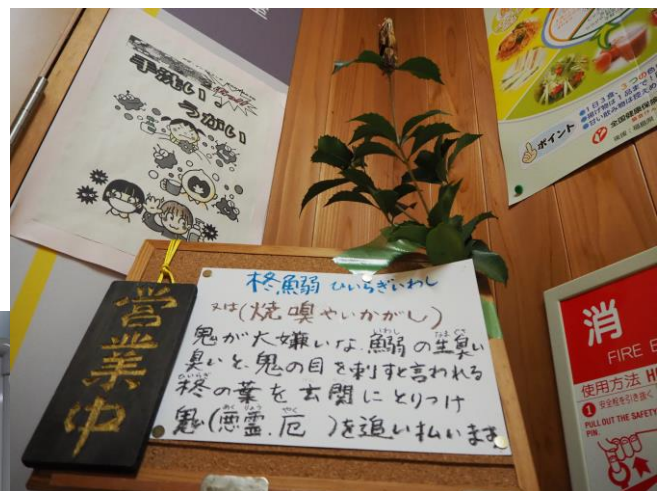 手洗い
うがい
営業中
柊鰯 ひいらぎいわし
又は(焼嗅やいかがし)
鬼が大嫌いな、鰯の生臭い
臭いと、鬼の目を刺すと言われる
柊の葉を玄関にとりつけ
鬼(悪霊、厄 )を追い払います
ポイント
全国健康保険
消
FIRE E
使用方法 H
1 安全栓を引き抜く
PULL OUT THE SAFETY
PIN.